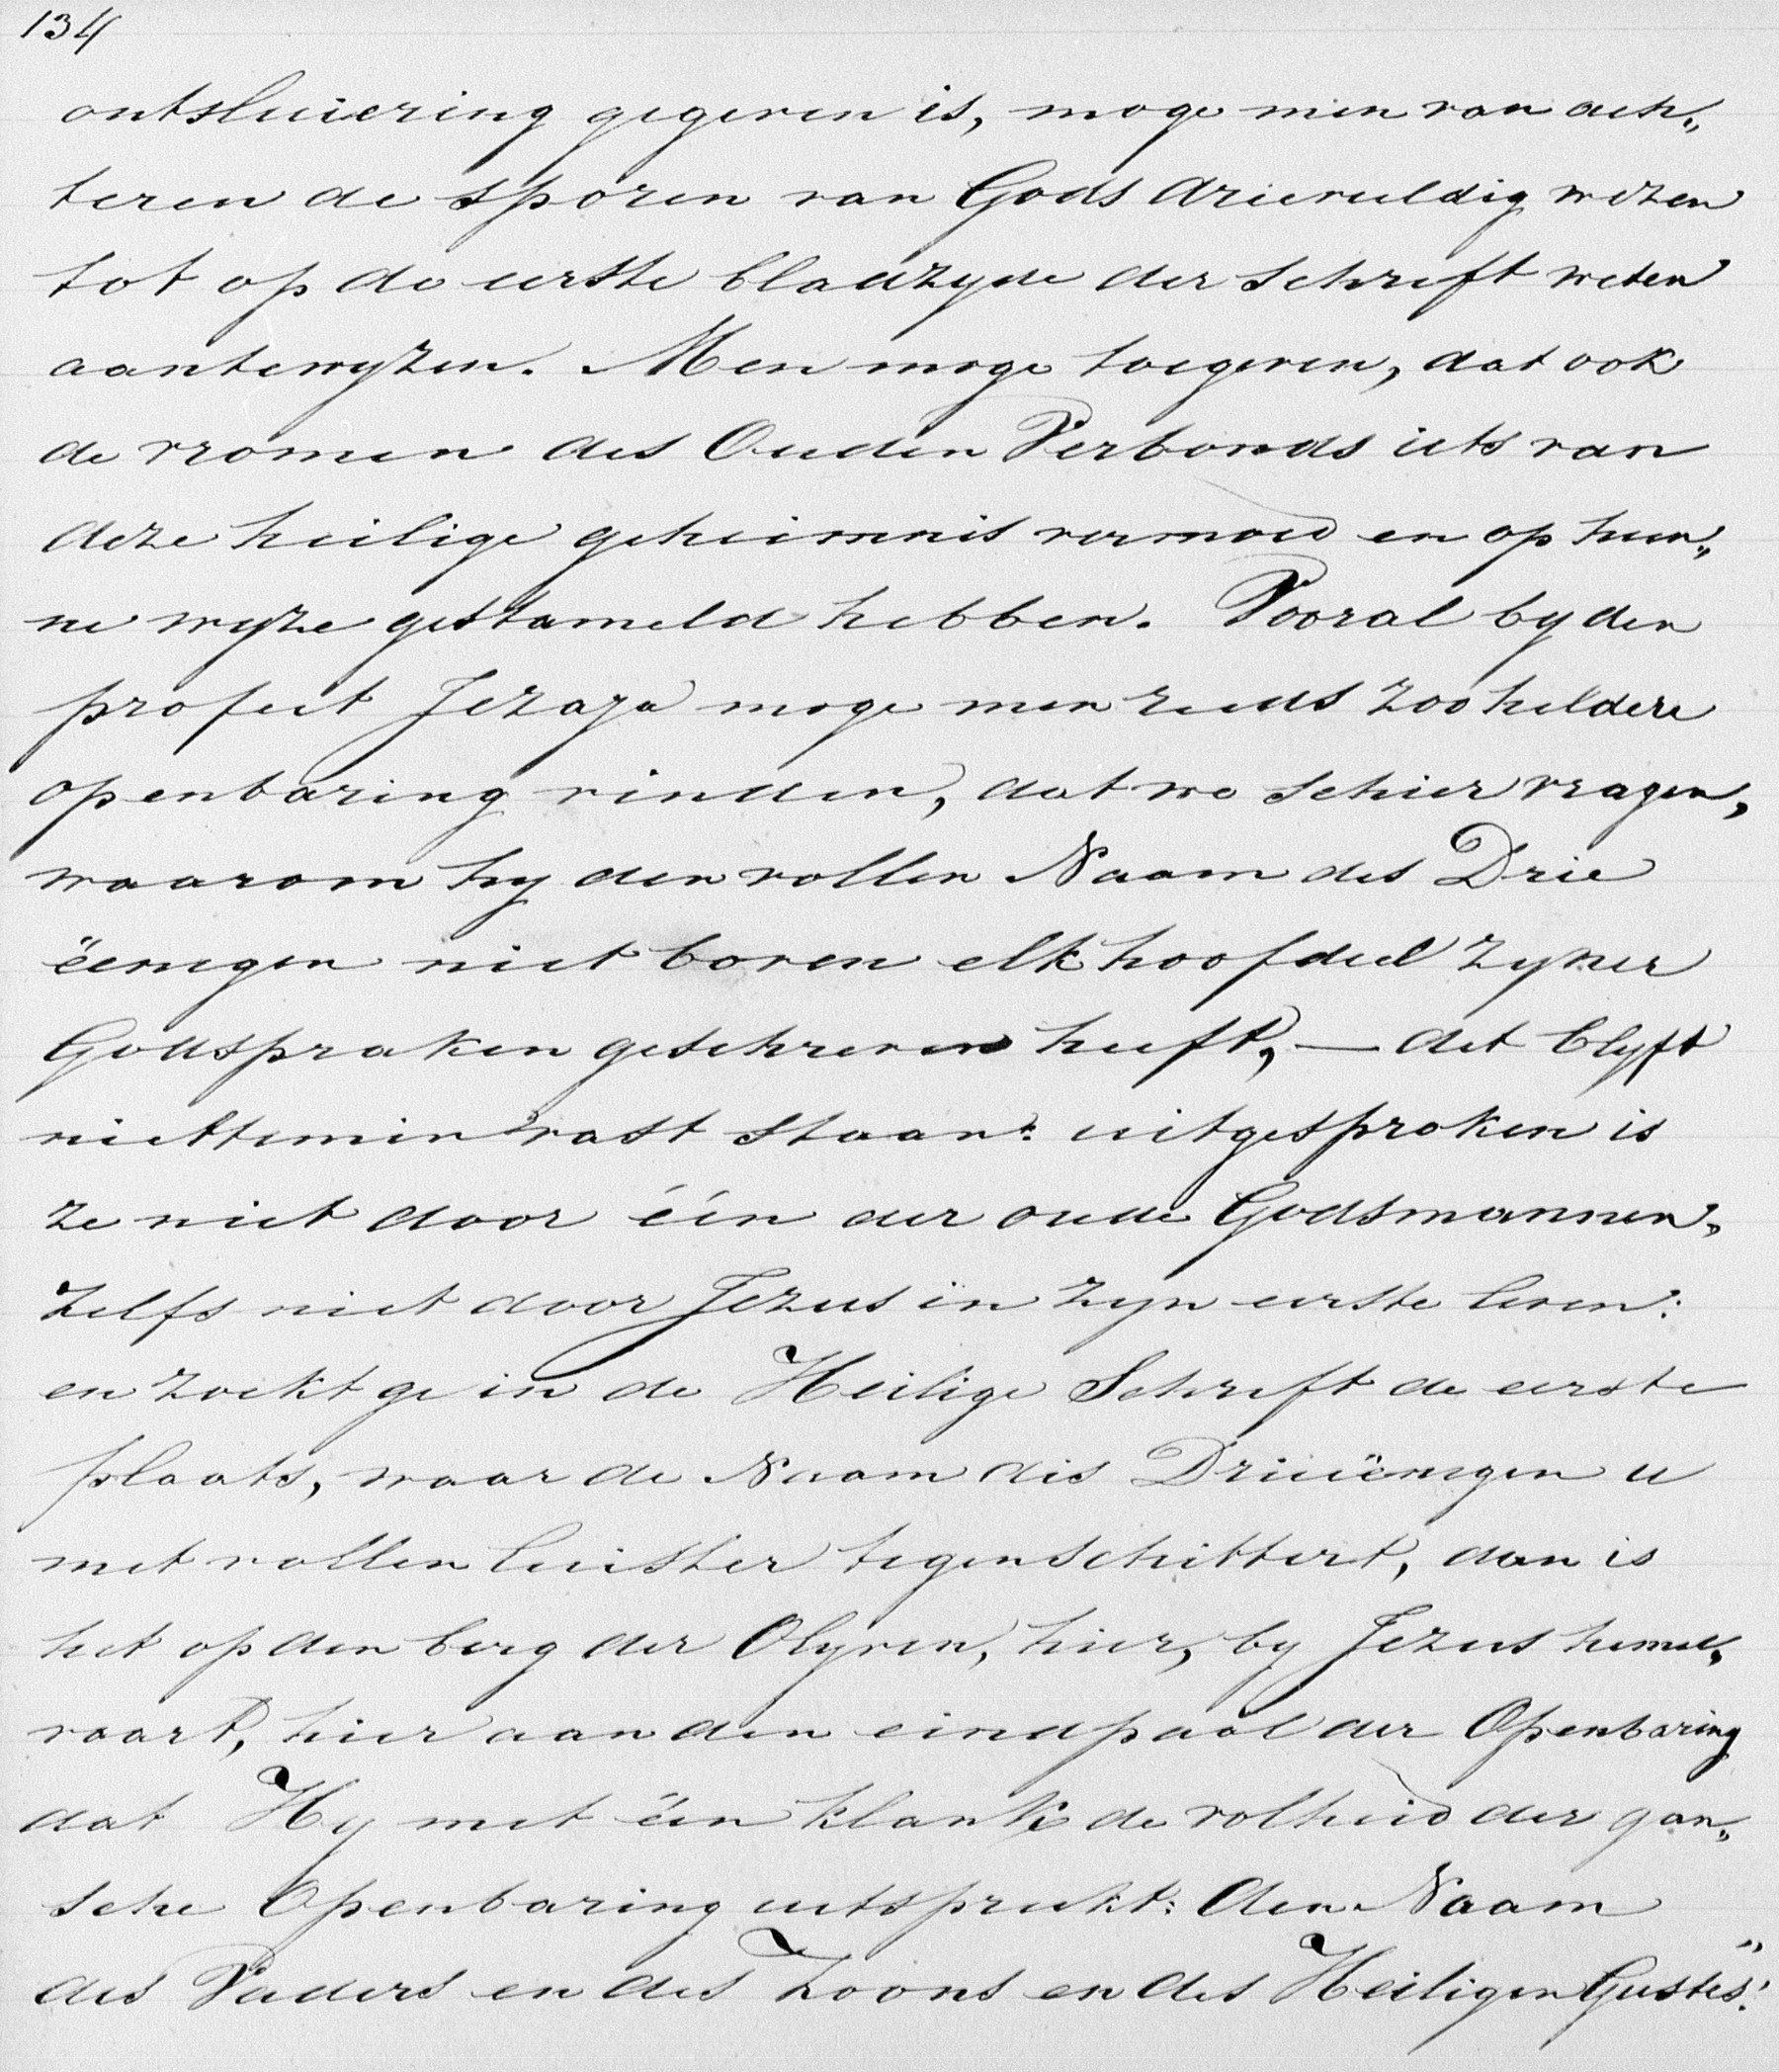 134
ontsluiering gegeven is, moge men van ach„
teren de sporen van Gods drievuldig wezen
tot op de eerste bladzyde der schrift weten
aantewyzen. Men moge toegeven, dat ook
de vromen des Ouden Verbonds iets van
deze heilige geheimnis vermoed en op hun„
ne wyze gestameld hebben. Vooral by den
profeet Jezaja moge men reeds zoo heldere
openbaring vinden, dat we schier vragen,
waarom hy den vollen Naam des Drie
ëenigen niet boven elk hoofddeel zyner
Godspraken geschreven heeft, — dit blyft
niettemin vast staan: uitgesproken is
ze niet door één der oude Godsmannen,
zelfs niet door Jezus in zyn eerste leven:
en zoekt ge in de Heilige Schrift de eerste
plaats, waar de Naam des Drieëenigen u
met vollen luister tegenschittert, dan is
het op den berg der Olyven, hier, by Jezus hemel„
vaart, hier aan den eindpaal der Openbaring
dat Hy met één klank de volheid der gan„
sche Openbaring uitspreekt: den Naam
des Vaders en des Zoons en des Heiligen Geestes."